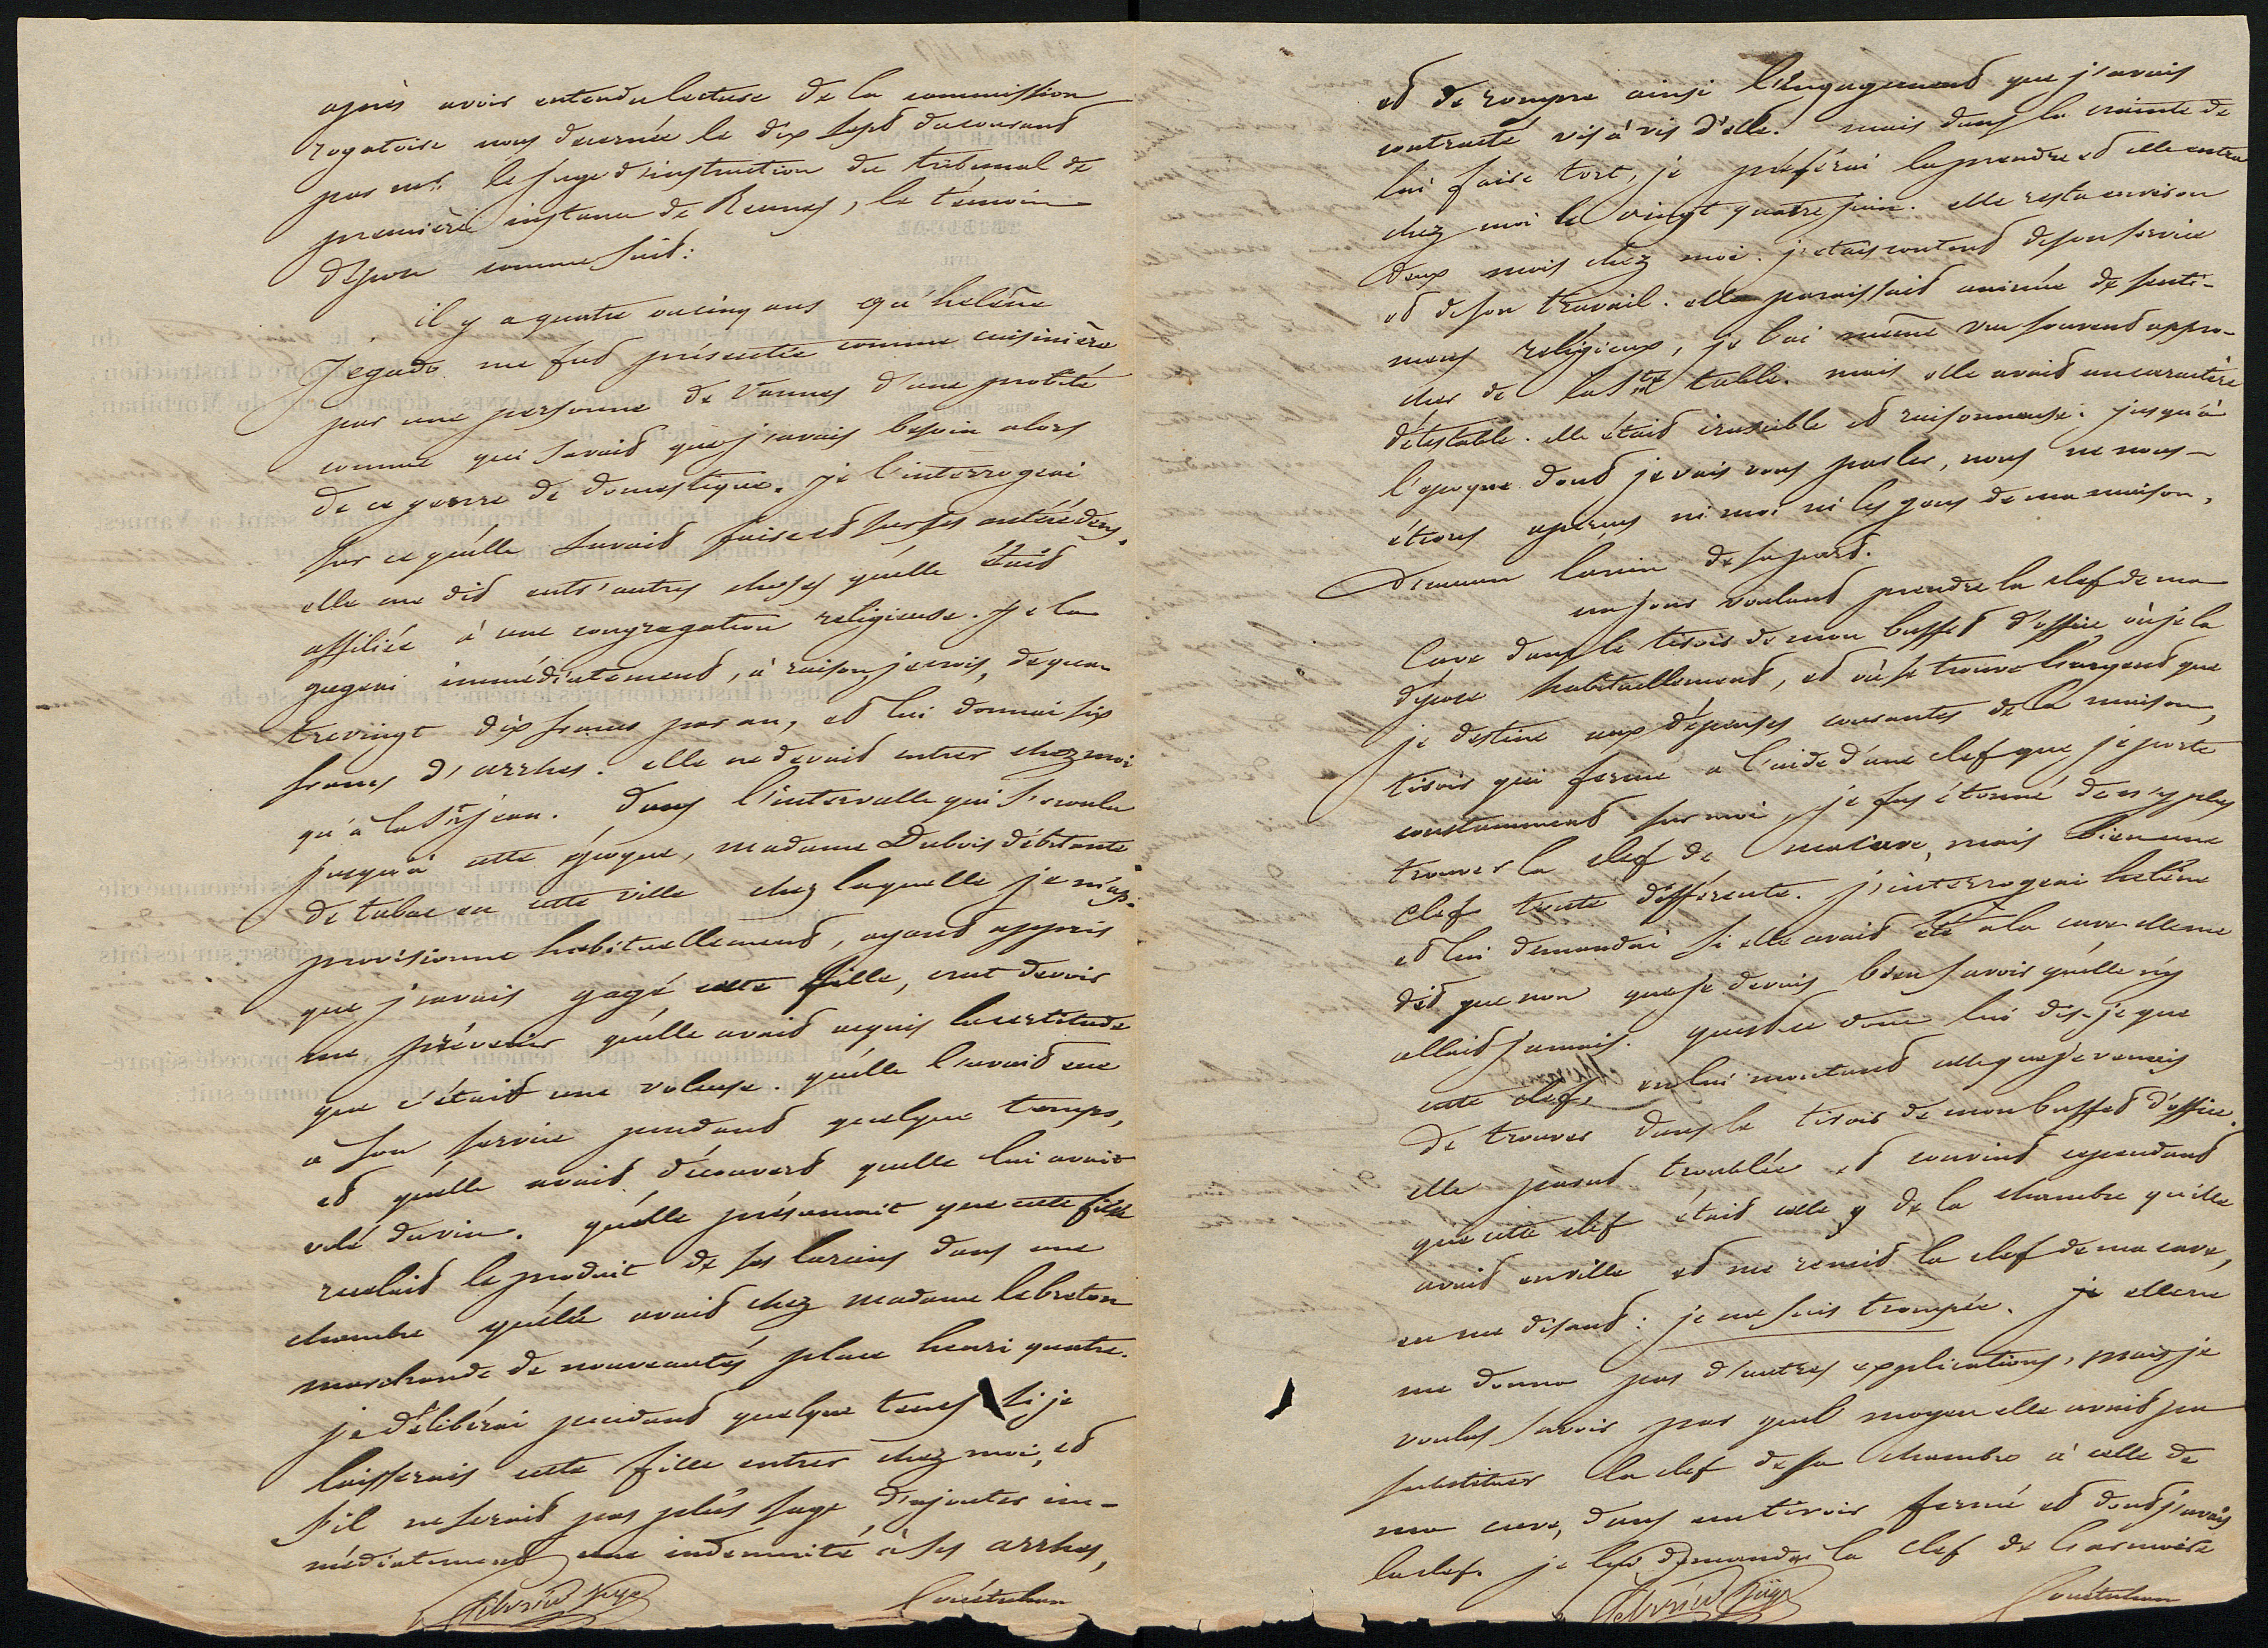 après avoir entendu lecture de la commission
rogatoire nous décernée le dix sept du courant
par mr. le juge d'instruction du tribunal de
première instance de Rennes, le témoin
dépose comme suit:
il y a quatre ou cinq ans qu'helène
Jegado me fut présentée comme cuisinière
par une personne de Vannes d'une probité
connue qui savait que j'avais besoin alors
de ce genre de domestique. je l'interrogeai
sur ce qu'elle savait faire et sur ses antécédens.
elle me dit entr'autres choses qu'elle était
affiliée à une congregation religieuse. je la
gageai immédiatement, à raison, je crois, de qua-
trevingt dix francs par an, et lui donnai six
francs d'arrhes. elle ne devait entrer chez moi
qu'à la St jean. dans l'intervalle qui s'ecoula
jusqu'à cette époque, madame Dubois débitante
de tabac en cette ville chez laquelle je m'ap-
provisionne habituellement, ayant appris
que j'avais gagé cette fille, crut devoir
me prévenir qu'elle avait acquis la certitude
que c'était une voleuse. qu'elle l'avait eue
a son service pendant quelque temps,
et qu'elle avait découvert qu'elle lui avait
volé du vin. qu'elle présumait que cette fille
recelait le produit de ses larcins dans une
chambre qu'elle avait chez madame lebreton
marchande de nouveautés place henri quatre.
je délibérai pendant quelque temps si je
laisserais cette fille entrer chez moi, et
s'il ne serait pas plus sage d'ajouter im-
médiatement une indemnité à ses arrhes,
juge
et de rompre ainsi l'engagement que j'avais
contracté vis à vis d'elle. mais dans la crainte de
lui faire tort, je préférai la prendre et elle entra
chez moi le vingt quatre juin. elle resta environ
deux mois chez moi. j'etais content de son service
et de son travail. elle paraissait animée de senti-
mens religieux, je l'ai même vue souvent appro-
cher de la Ste table. mais elle avait un caractère
détestable. elle était irascible et raisonneuse. jusqu'à
l'époque dont je vais vous parler, nous ne nous
étions aperçus ni moi ni les gens de ma maison,
d'aucun larcin de sa part.
un jour voulant prendre la clef de ma
cave dans le tiroir de mon buffet d'office où je la
dépose habituellement, et où se trouve l'argent que
je destine aux dépenses courantes de la maison,
tiroir qui ferme a l'aide d'une clef que je porte
constamment sur moi, je fus étonné de n'y plus
trouver la clef de ma cave, mais bien une
clef toute différente. j'interrogeai helène
et lui demandai si elle avait été à la cave elle me
dit que non que je devais bien savoir qu'elle n'y
allait jamais. qu'est ce donc lui dis-je que
cette clef, en lui montant celle que je venais
de trouver dans le tiroir de mon buffet d'office.
elle parut troublée et convint cependant
que cette clef était celle de la chambre qu'elle
avait en ville et me remit la clef de ma cave,
en me disant: je me suis trompée. elle ne
me donna pas d'autres explications, mais je
voulus savoir par quel moyen elle avait pu
substituer la clef de sa chambre à celle de
ma cave, dans un tiroir fermé et dont j'avais
la clef. je lui demandai la clef de l'armoire
juge